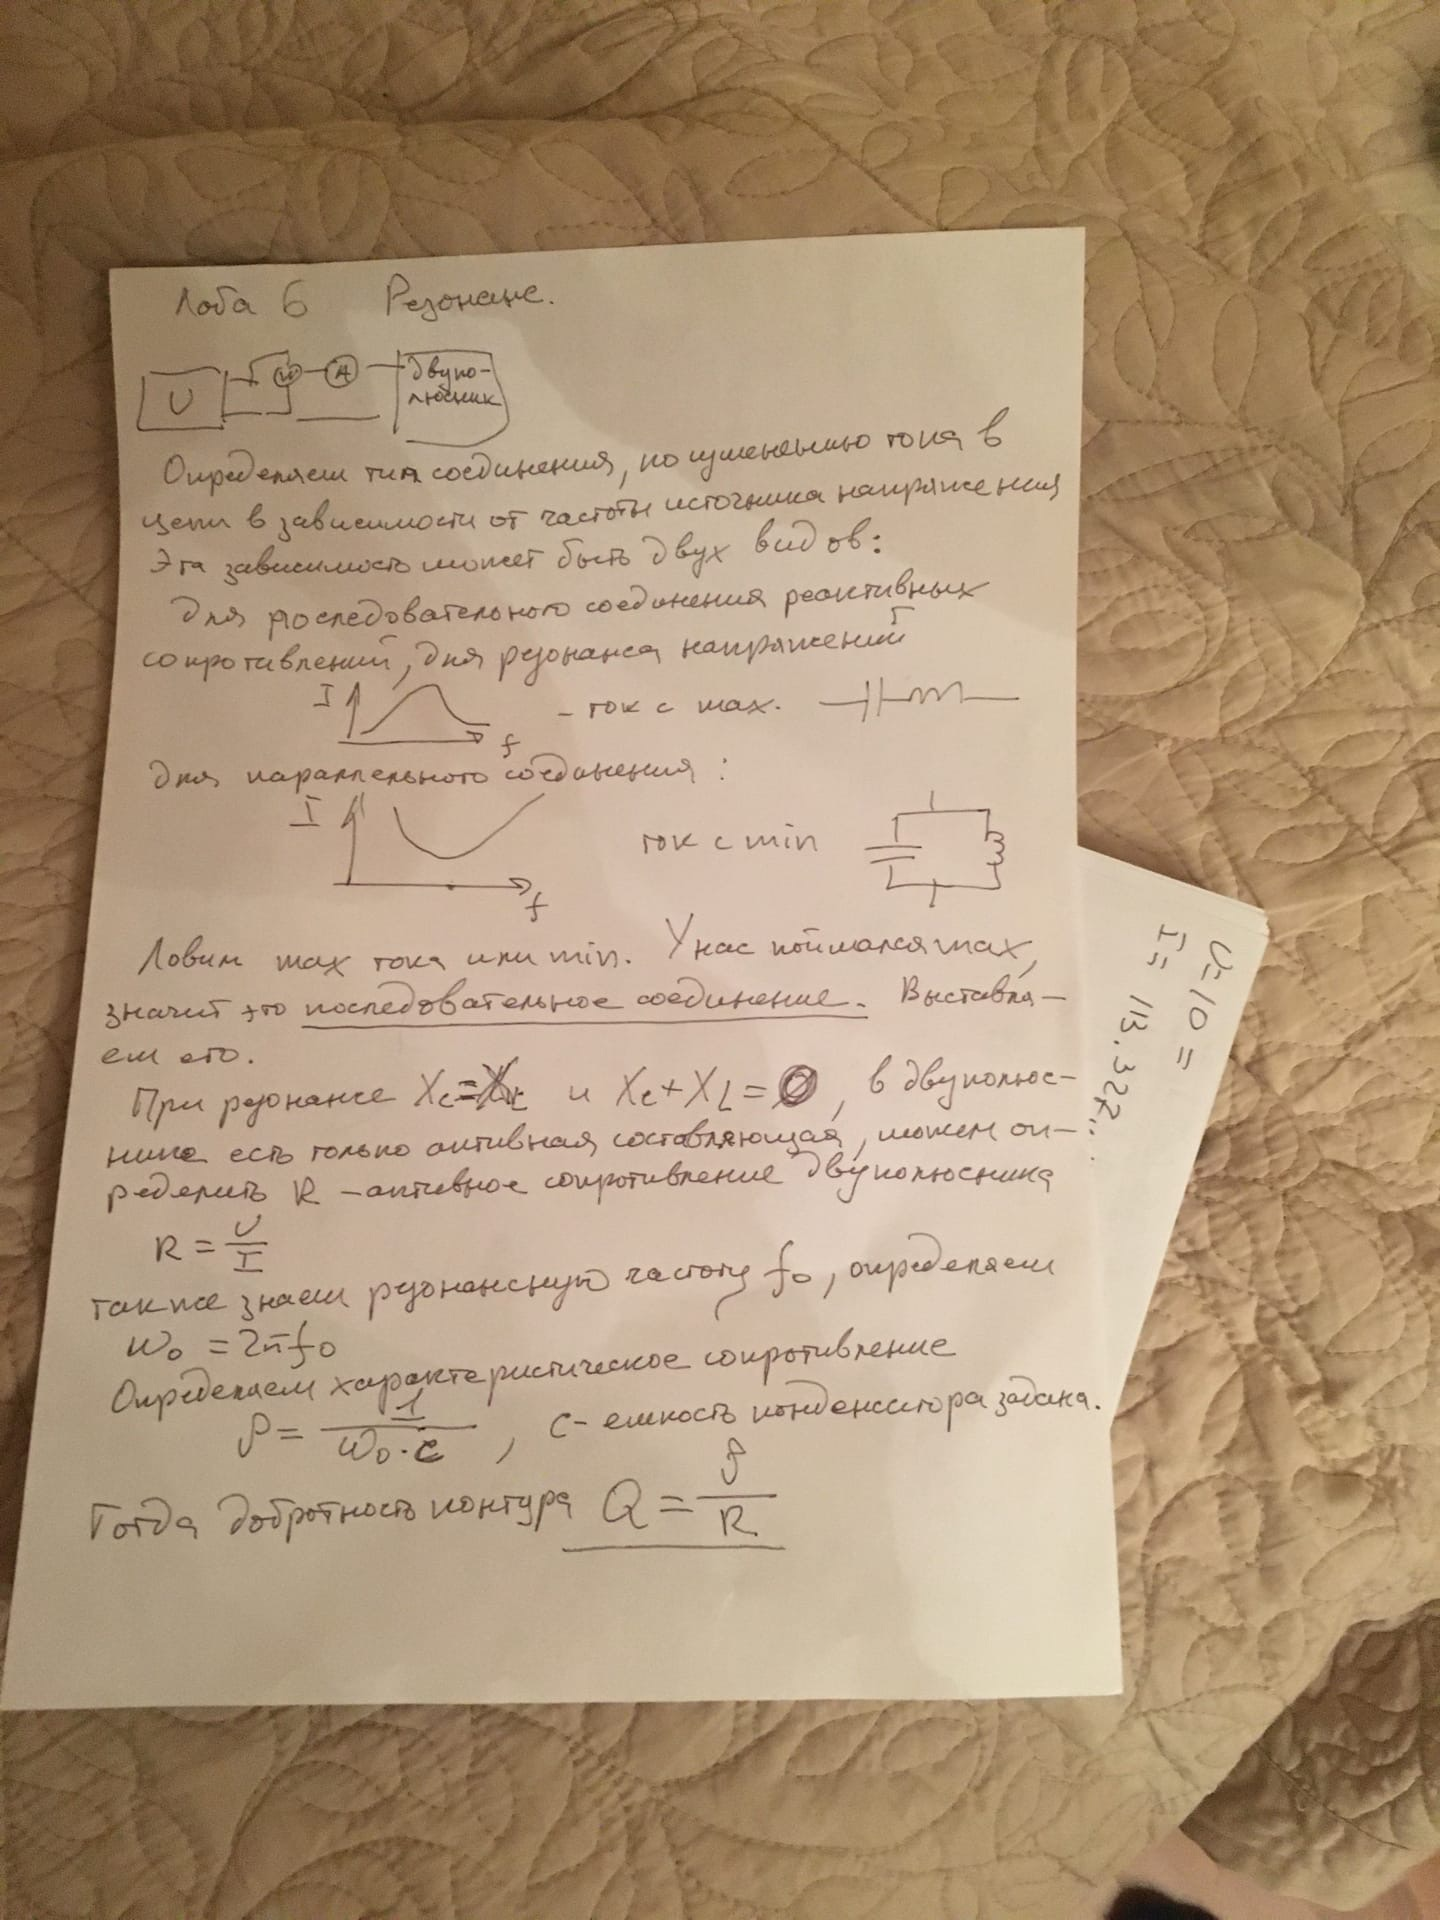 Лаба 6 Резонанс.
U W A двупо-
люсник
Определяем тип соединения, по изменению тока в
цепи в зависимости от частоты источника напряжения
Эта зависимость может быть двух видов:
Для последовательного соединения реактивных
сопротивлений, для резонанса напряжений
I f - ток с max.
Для параллельного соединения:
I f ток с min
Ловим max тока или min. У нас поймался max,
значит это последовательное соединение. Выставля-
ем его.
При резонансе Xc=XL и Xc+XL=0, в двуполюс-
нике есть только активная составляющая, можем оп-
ределить R - активное сопротивление двуполюсника
R = U/I
также знаем резонансную частоту f0, определяем
w0 = 2πf0
Определяем характеристическое сопротивление
ρ = 1/(w0·c), c - емкость конденсатора задана.
Тогда добротность контура Q = ρ/R
U=10=
I= 113.327..